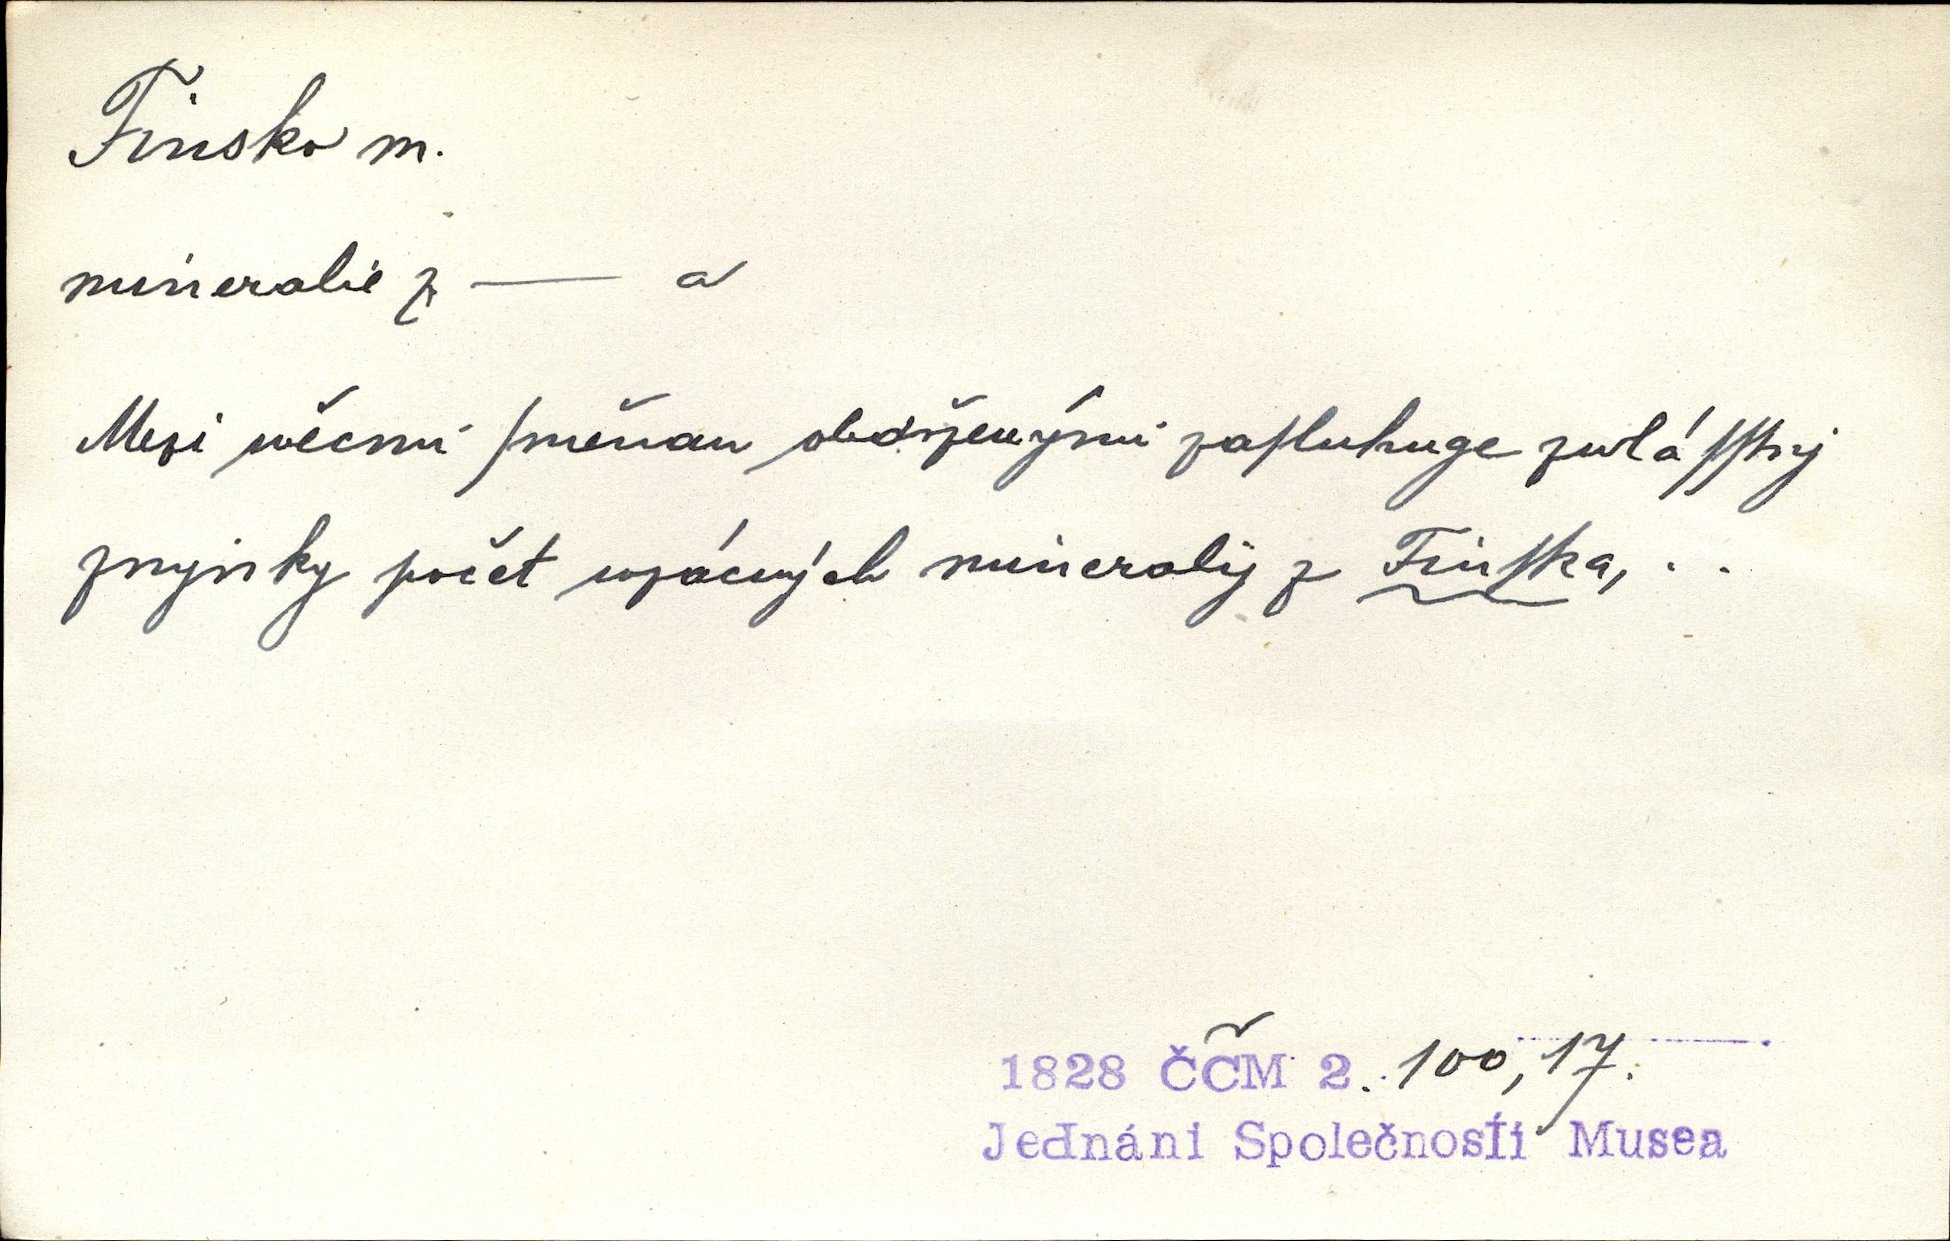 Finsko m.
mineralie z — a
Mezi věcmi ſměnau obdrženými zaſluhuge zwláſſtnj
zmjnky počet wzácných mineralij z Finſka, . .
1828 ČČM 2. 100, 17.
Jednání Společnosti Musea